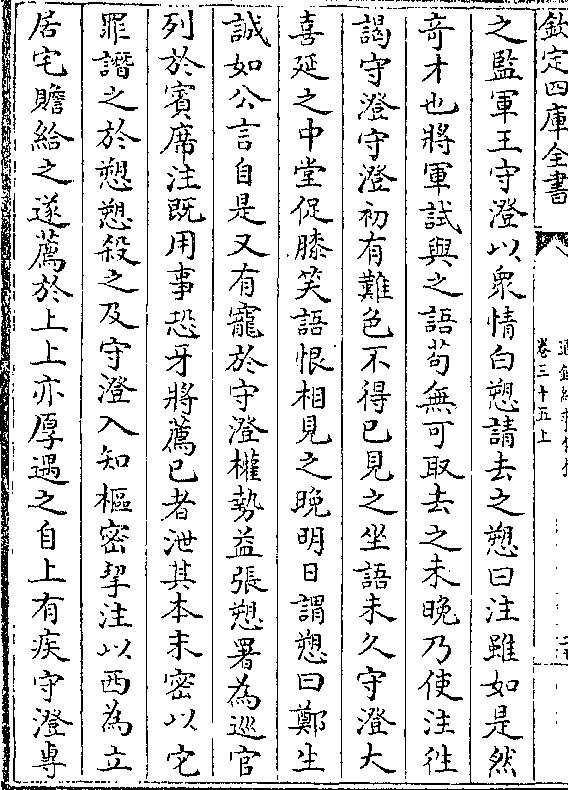 欽定四庫全書
卷三十五上
之監軍王守澄以衆情白愬請去之愬曰注雖如是然
奇才也將軍試與之語苟無可取去之未晚乃使注往
謁守澄守澄初有難色不得已見之坐語未久守澄大
喜延之中堂促膝笑語恨相見之晚明日謂愬曰鄭生
誠如公言自是又有寵於守澄權勢益張愬署為巡官
列於賓席注既用事恐牙將薦已者泄其本末密以它
罪譖之於愬愬殺之及守澄入知樞密挈注以西為立
居宅贍給之遂薦於上上亦厚遇之自上有疾守澄専